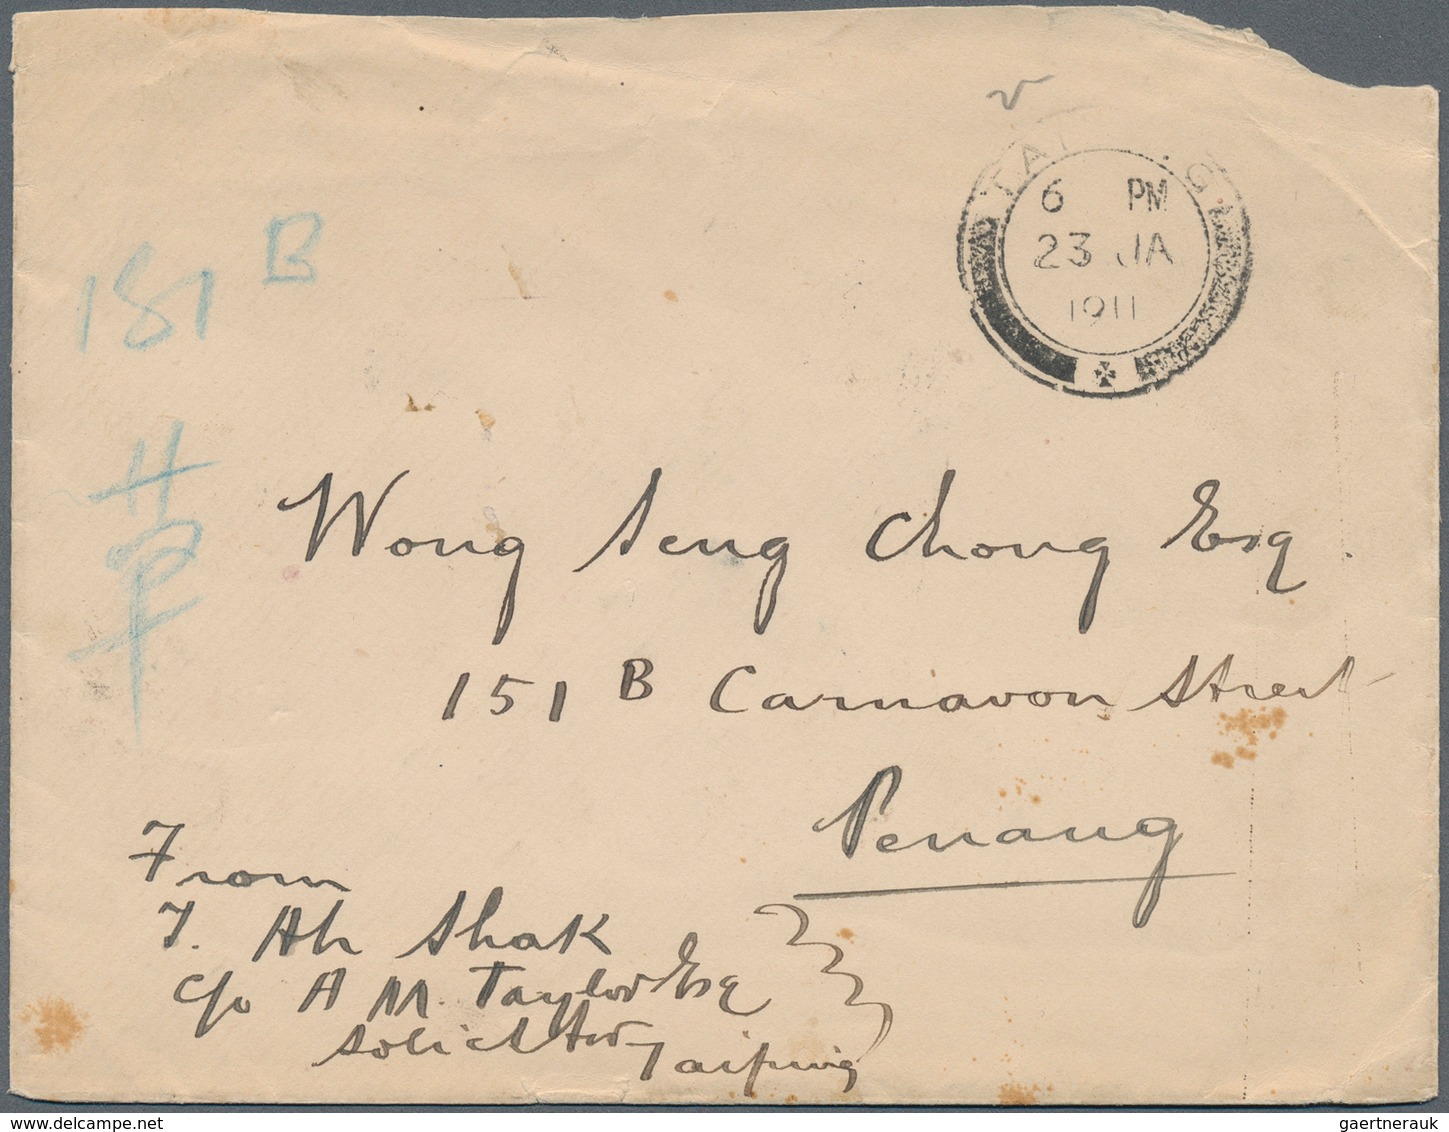 TAI    G
6 PM
23 JA
1911
181 B
草
Wong Seng Chong Esq.
151 B Carnavon Street
Penang
From
T. Ah Shak
c/o A M. Taylor Esq
Solicitor
Taiping
gaertnerauk
delcampe.net